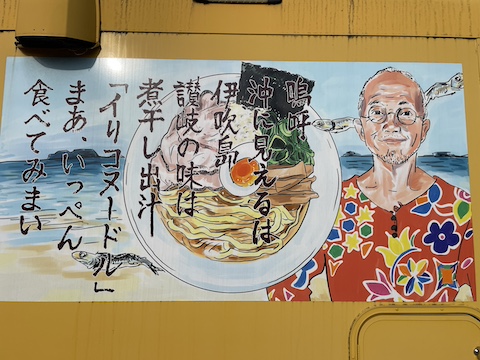 嗚呼
沖に見えるは
伊吹島
讃岐の味は
煮干し出汁
「イリコヌードル」
まあ、いっぺん
食べてみまい